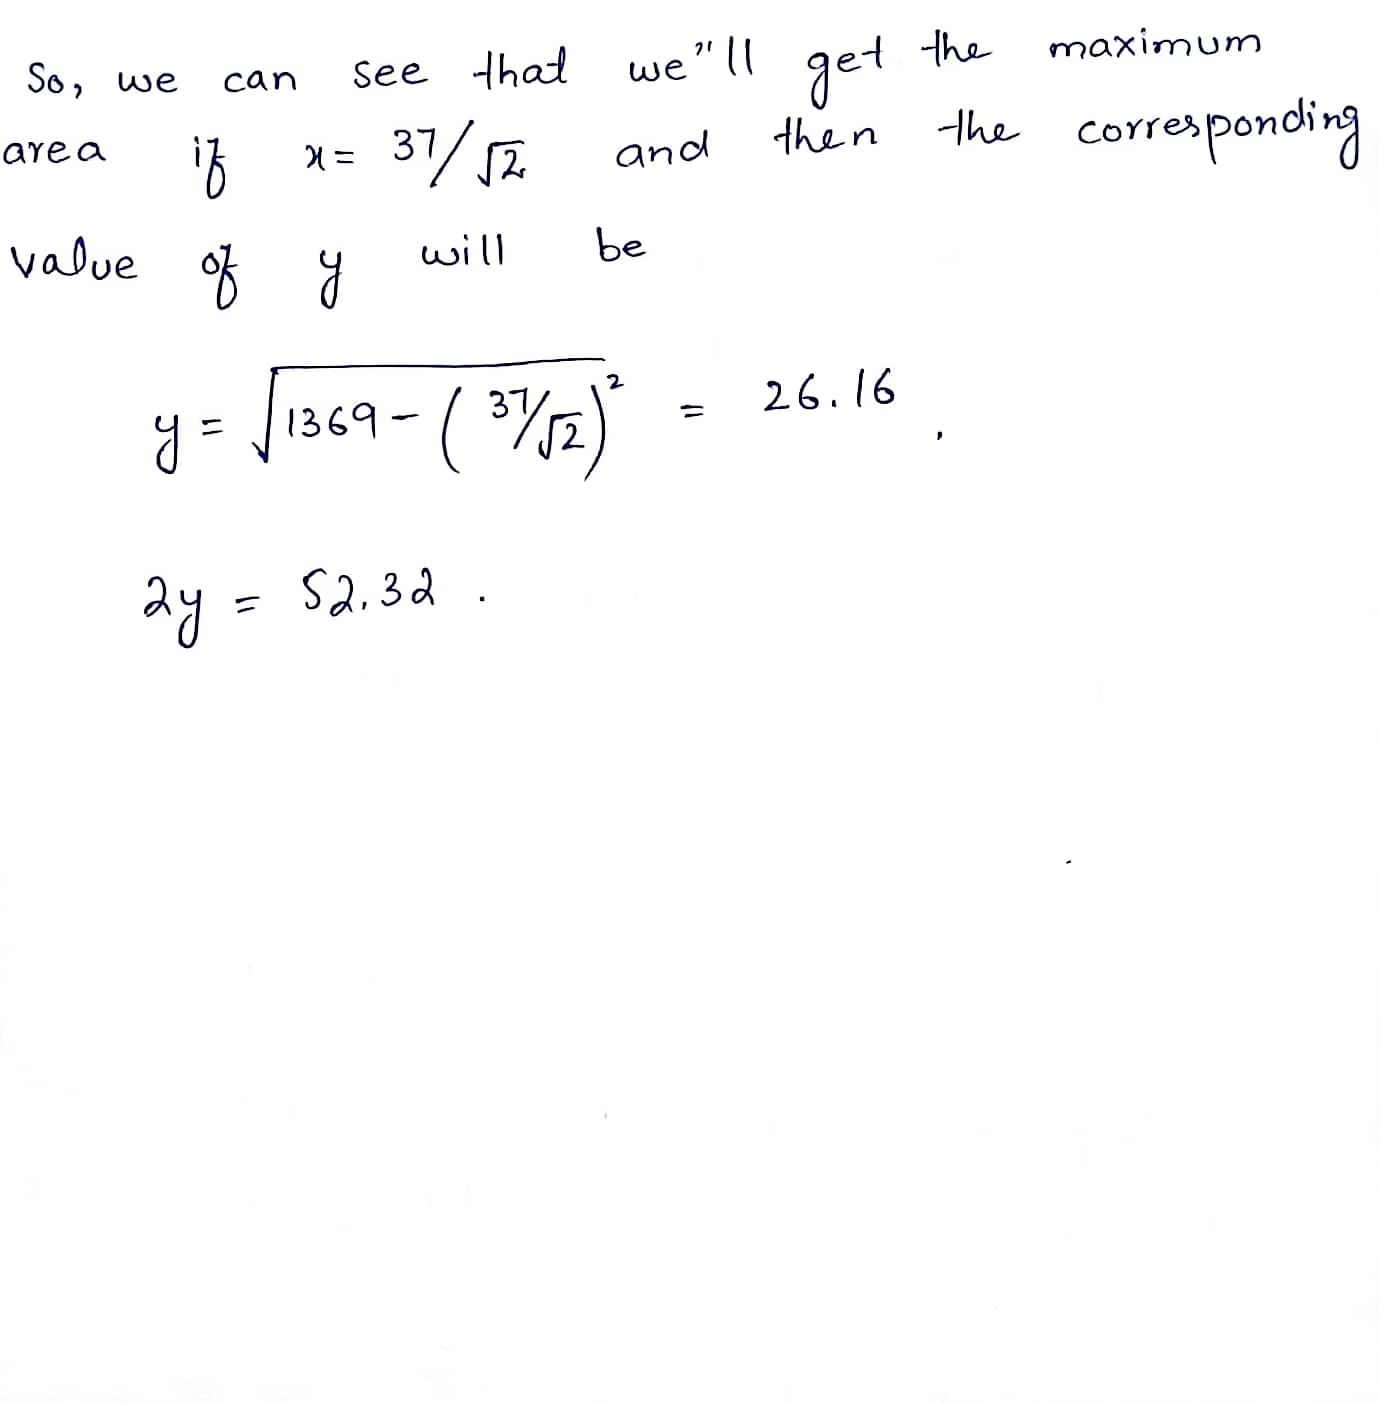 So, we can see that we"ll get the maximum
area if x = 37/√2 and then the corresponding
value of y will be
y = √1369 - (37/√2)² = 26.16,
2y = 52.32.